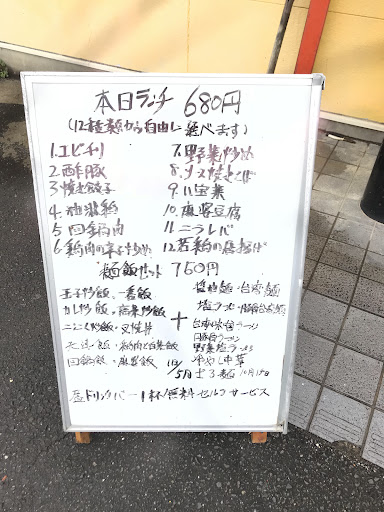 本日ランチ 680円
(12種類から自由に選べます)
1.エビチリ 7.野菜炒め
2.酢豚 8.ソース焼きそば
3.焼き餃子 9.八宝菜
4.油淋鶏 10.麻婆豆腐
5.回鍋肉 11.ニラレバ
6.鶏肉の辛子炒め 12.若鶏の唐揚げ
麺飯セット 750円
玉子炒飯、一番飯 醤油麺・台湾麺
カレー炒飯・高菜炒飯 塩ラーメン
ニンニク炒飯・叉焼丼 + 台湾味噌ラーメン
天津飯・野菜塩ラーメン
回鍋飯・麻婆飯 冷やし中華
昼ドリンクバー1杯無料セルフサービス